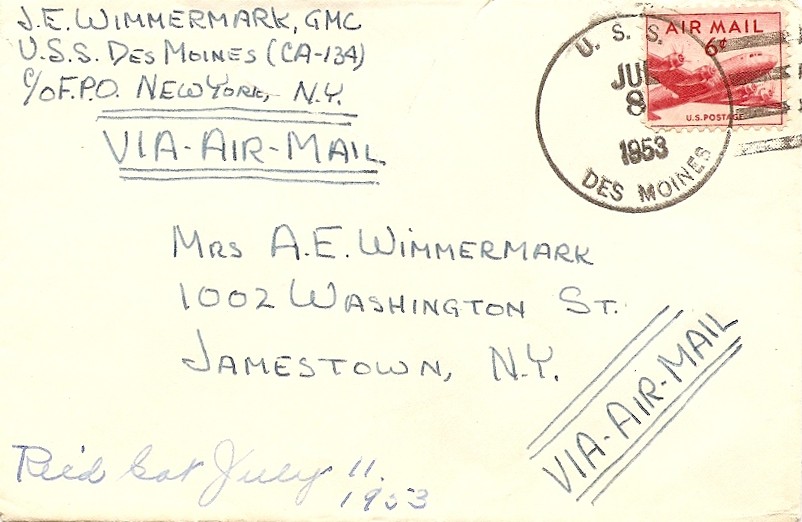 J.E. WIMMERMARK, GMC
U.S.S. DES MOINES (CA-134)
C/O F.P.O. NEW YORK, N.Y.
VIA-AIR-MAIL
U. S. S.
JUL
8
1953
DES MOINES
AIR MAIL
6¢
U.S. POSTAGE
MRS A.E. WIMMERMARK
1002 WASHINGTON ST.
JAMESTOWN, N.Y.
VIA-AIR-MAIL
Rec'd Sat July 11.
1953